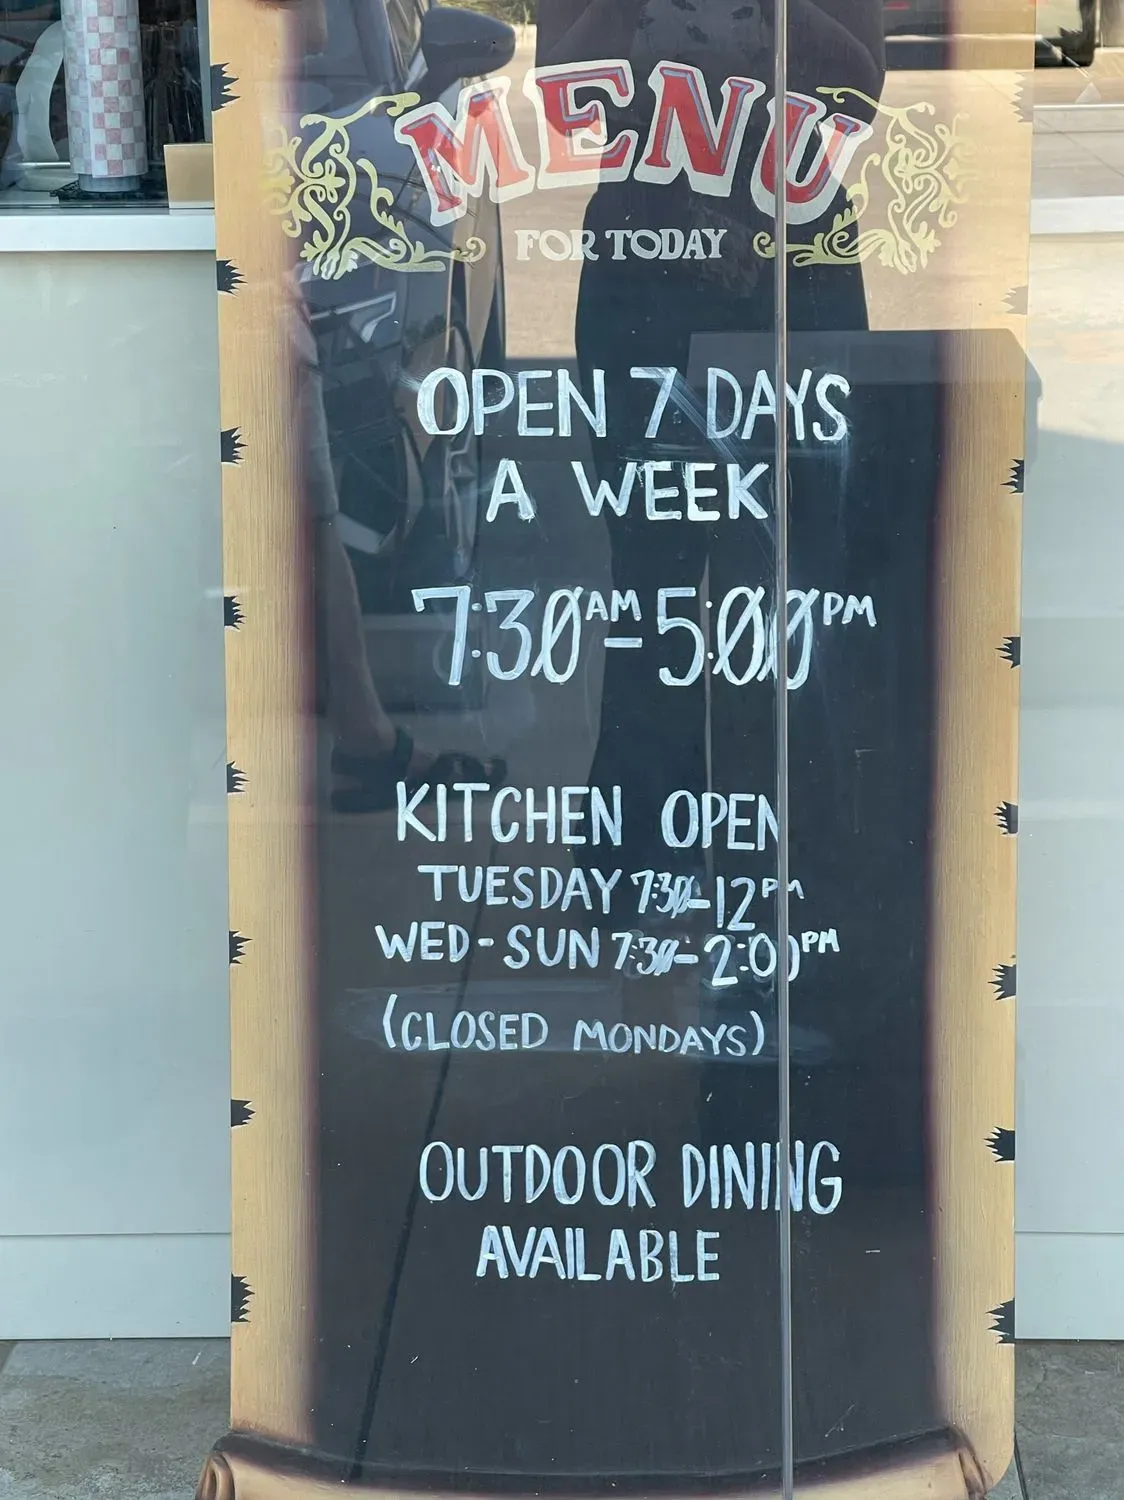 MENU
FOR TODAY
OPEN 7 DAYS
A WEEK
7:30AM-5:00PM
KITCHEN OPEN
TUESDAY 7:30-12PM
WED-SUN 7:30-2:00PM
(CLOSED MONDAYS)
OUTDOOR DINING
AVAILABLE